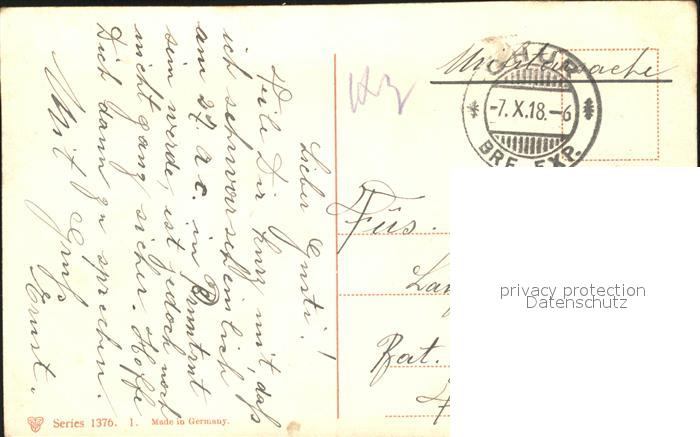 Lieber Gusti!
Teile Dir kurz mit, daß
ich sehr warscheinlich
am 27. a c. in Pruntrut
sein werde, ist jedoch noch
nicht ganz sicher. Hoffe
Dich dann zu sprechen.
Mit Gruß
Ernst.
Militärsache
CHUR
-7.X.18.-6
BRF. EXP.
Füs.
Bat.
privacy protection
Datenschutz
Series 1376. 1. Made in Germany.